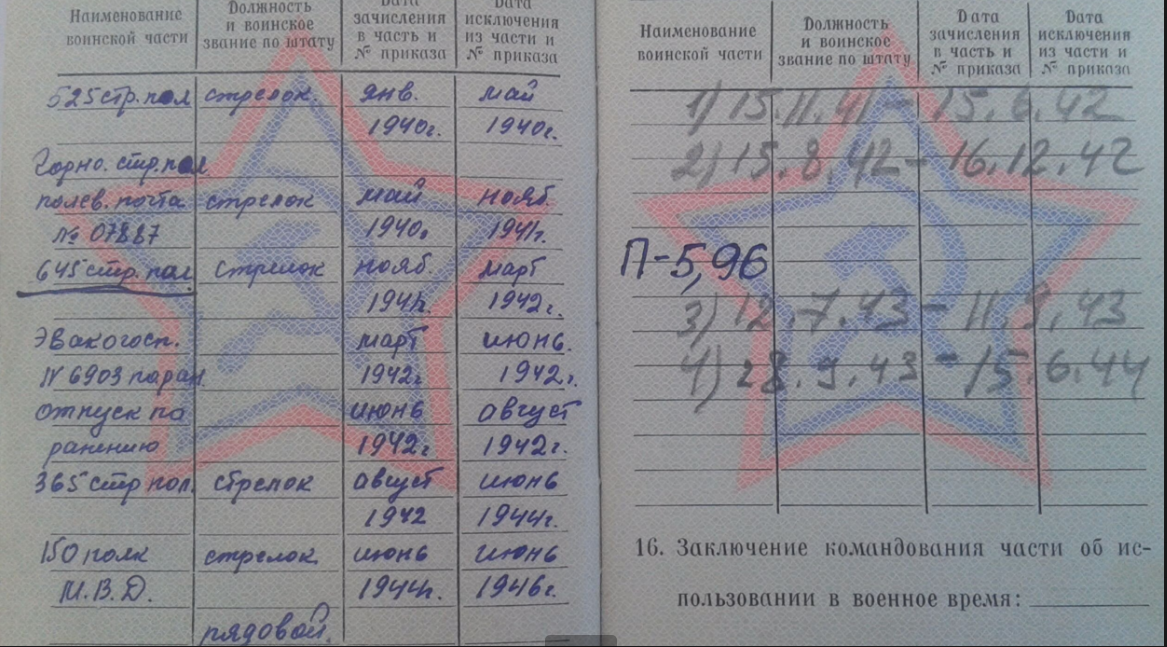 Наименование воинской части
Должность и воинское звание по штату
Дата зачисления в часть и № приказа
Дата исключения из части и № приказа
525 стр. пол стрелок янв. май
1940г. 1940г.
Горно. стр. пол
полев. почта стрелок май нояб.
№ 07887 1940г 1941г.
645 стр. пол. стрелок нояб. март
1941г. 1942г.
Эвакогосп. март июнь.
N 6903 по ран. 1942г 1942г.
отпуск по июнь август
ранению 1942г 1942г.
365 стр пол. стрелок август июнь
1942 1944г.
150 полк стрелок июнь июнь
М.В.Д. 1944г. 1946г.
рядовой.
Наименование воинской части
Должность и воинское звание по штату
Дата зачисления в часть и № приказа
Дата исключения из части и № приказа
1) 15.11.41 - 15.6.42
2) 15.8.42 - 16.12.42
П-5,96
3) 12.7.43 - 11.9.43
4) 28.9.43 - 15.6.44
16. Заключение командования части об ис-
пользовании в военное время: